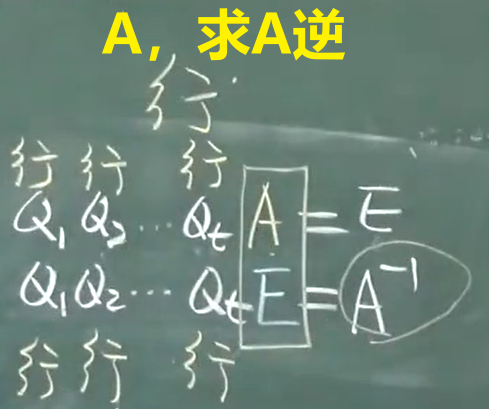 A，求A逆
行
行 行 行
Q₁ Q₂ … Qₜ A = E
Q₁ Q₂ … Qₜ E = A⁻¹
行 行 行